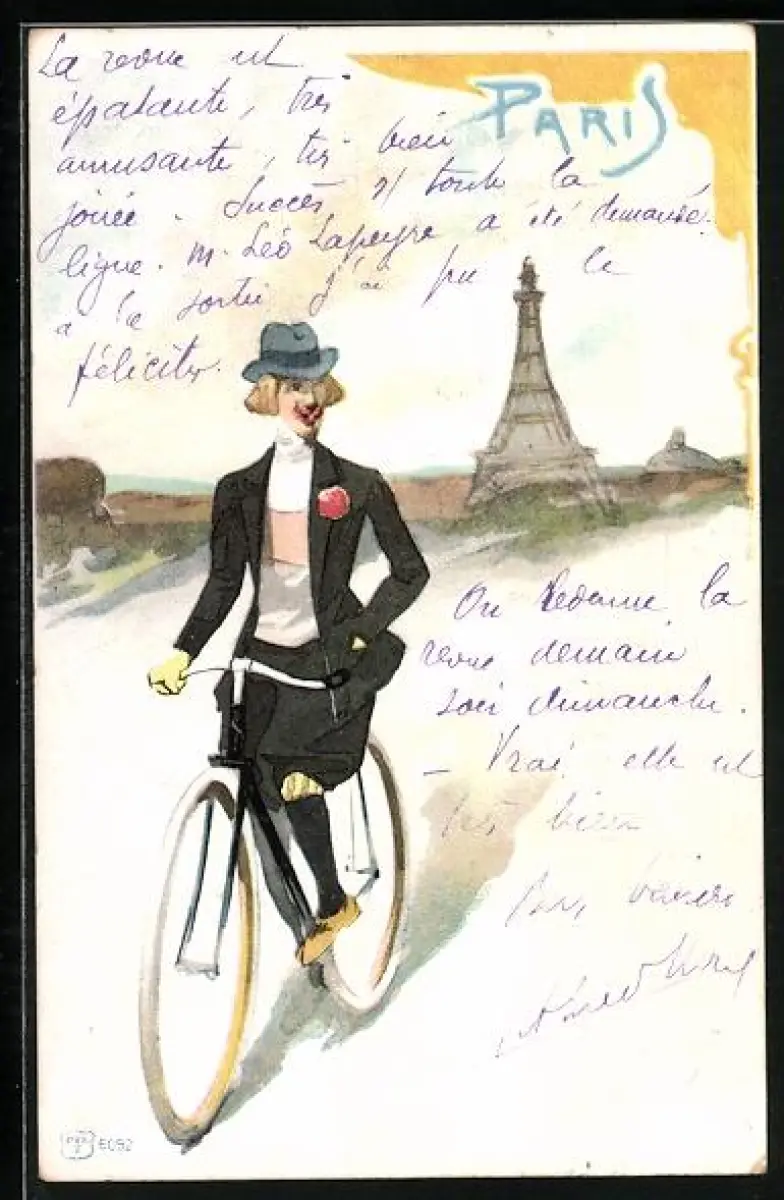 La revue est
épatante, très
amusante, très bien
PARIS
jouée. Succès s/ toute la
ligne. M. Léo Lapeyre a été demandé
à la sortie j'ai pu le
féliciter.
On redonne la
revue demain
soir dimanche.
- Vrai elle est
très bien
Bons baisers
6092